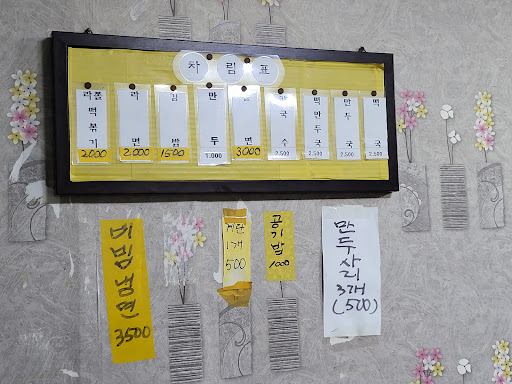 차림표
라쫄떡볶기 2000
라면 2000
김밥 1500
만두 1.000
면 3000
국수 2.500
떡만두국 2.500
만두국 2.500
떡국 2.500
비빔냉면 3500
계란 1개 500
공기밥 1000
만두사리 3개 (500)